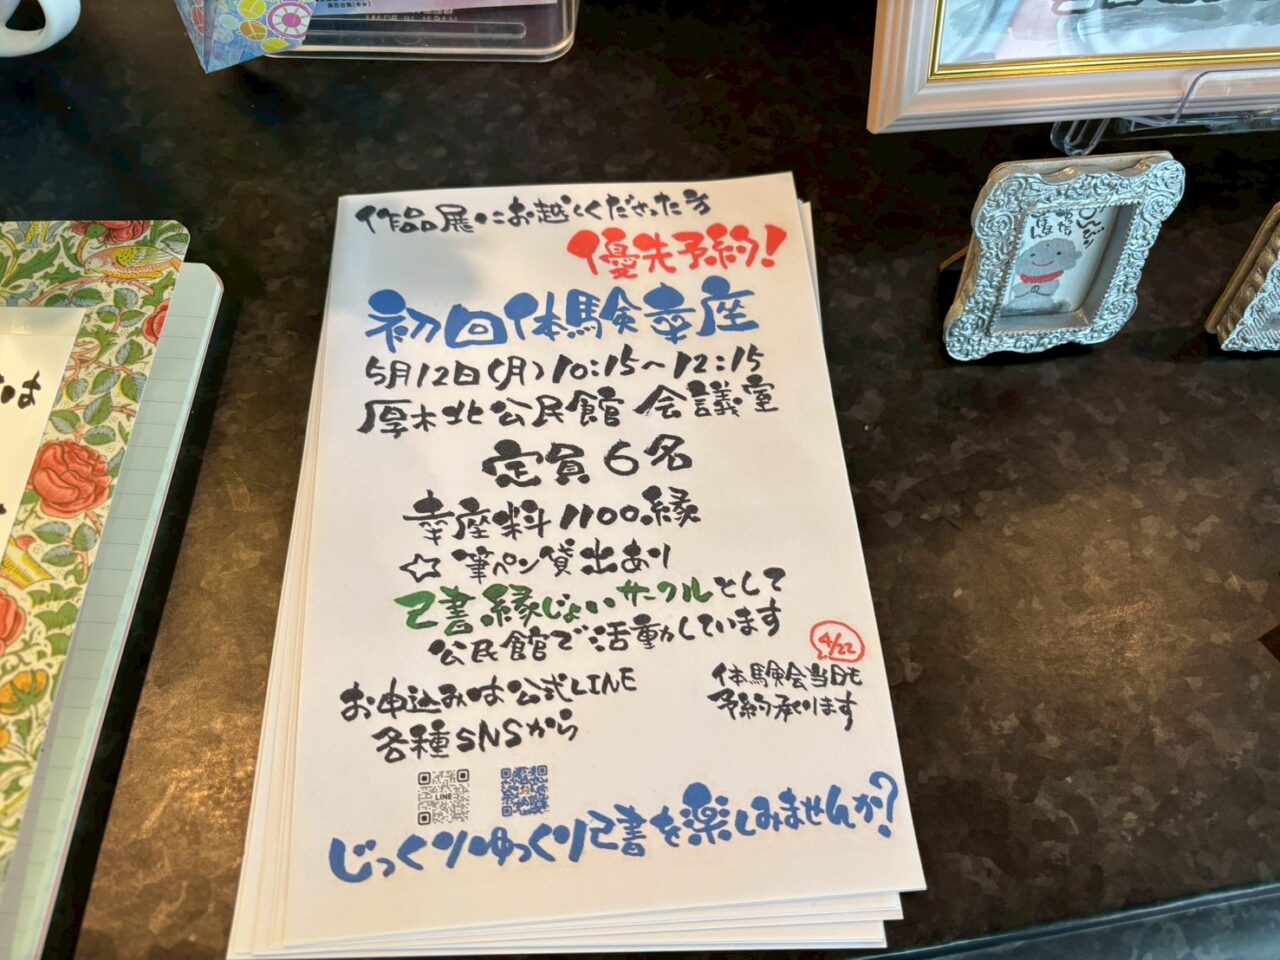 作品展にお越しくださった方
優先予約!
初回体験幸座
5月12日(月)10:15～12:15
厚木北公民館 会議室
定員6名
幸座料1100縁
☆筆ペン貸出あり
己書縁じょいサークルとして
公民館で活動しています
お申込みは公式LINE
各種SNSから
4/22
体験会当日も
予約承ります
LINE
じっくりゆっくり己書を楽しみませんか?